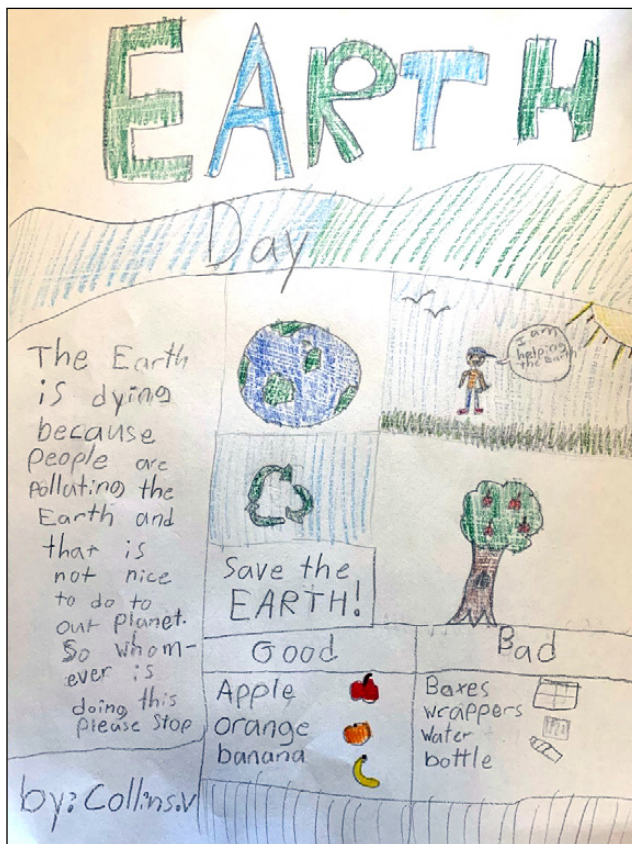 EARTH
Day
The Earth
is dying
because
people are
Pollating the
Earth and
that is
not nice
to do to
out planet.
So whom-
ever is
doing this
please stop
I am
helping
the earth
Save the
EARTH!
Good
Apple
orange
banana
Bad
Boxes
wrappers
water
bottle
by: Collins.v